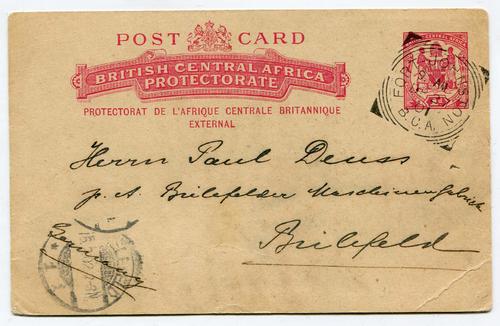 POST CARD
BRITISH CENTRAL AFRICA
PROTECTORATE
PROTECTORAT DE L'AFRIQUE CENTRALE BRITANNIQUE
EXTERNAL
FORT JOHNSTON
B.C.A.
Herrn Paul Deuss
p. A. Bielefelder Maschinenfabrik
Bielefeld
Germany